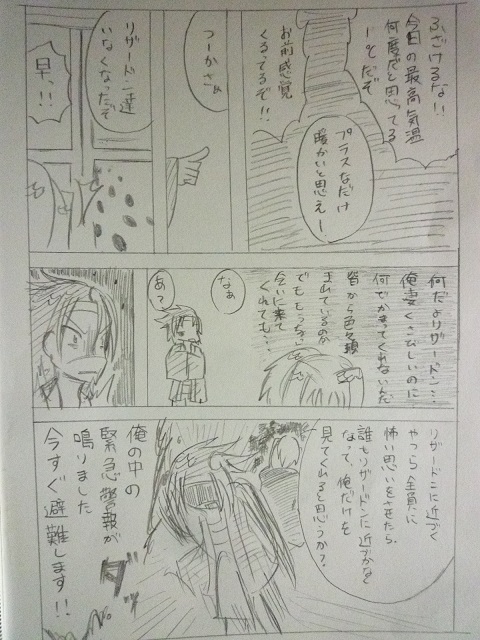 ふざけるない
今日の最高気温
何度だと思ってる
1℃だぞ
プラスなだけ
暖かいと思えー
お前感覚
くるてるぞ!!
つーかさぁ
リザードン達
いなくなったぞ
早っ!!
何だよリザードン…
俺凄くさびしいのに
何でかまってくれないんだ
皆から色々頼
まれているのか
でももっちょい
会いに来て
くれても…
なぁ
あ?
リザードンに近づく
やつら全員に
怖い思いをさせたら
誰もリザードンに近づかなく
なって、俺だけを
見てくれると思うか?
俺の中の
緊急警報が
鳴りました
今すぐ避難します!!
ダッ